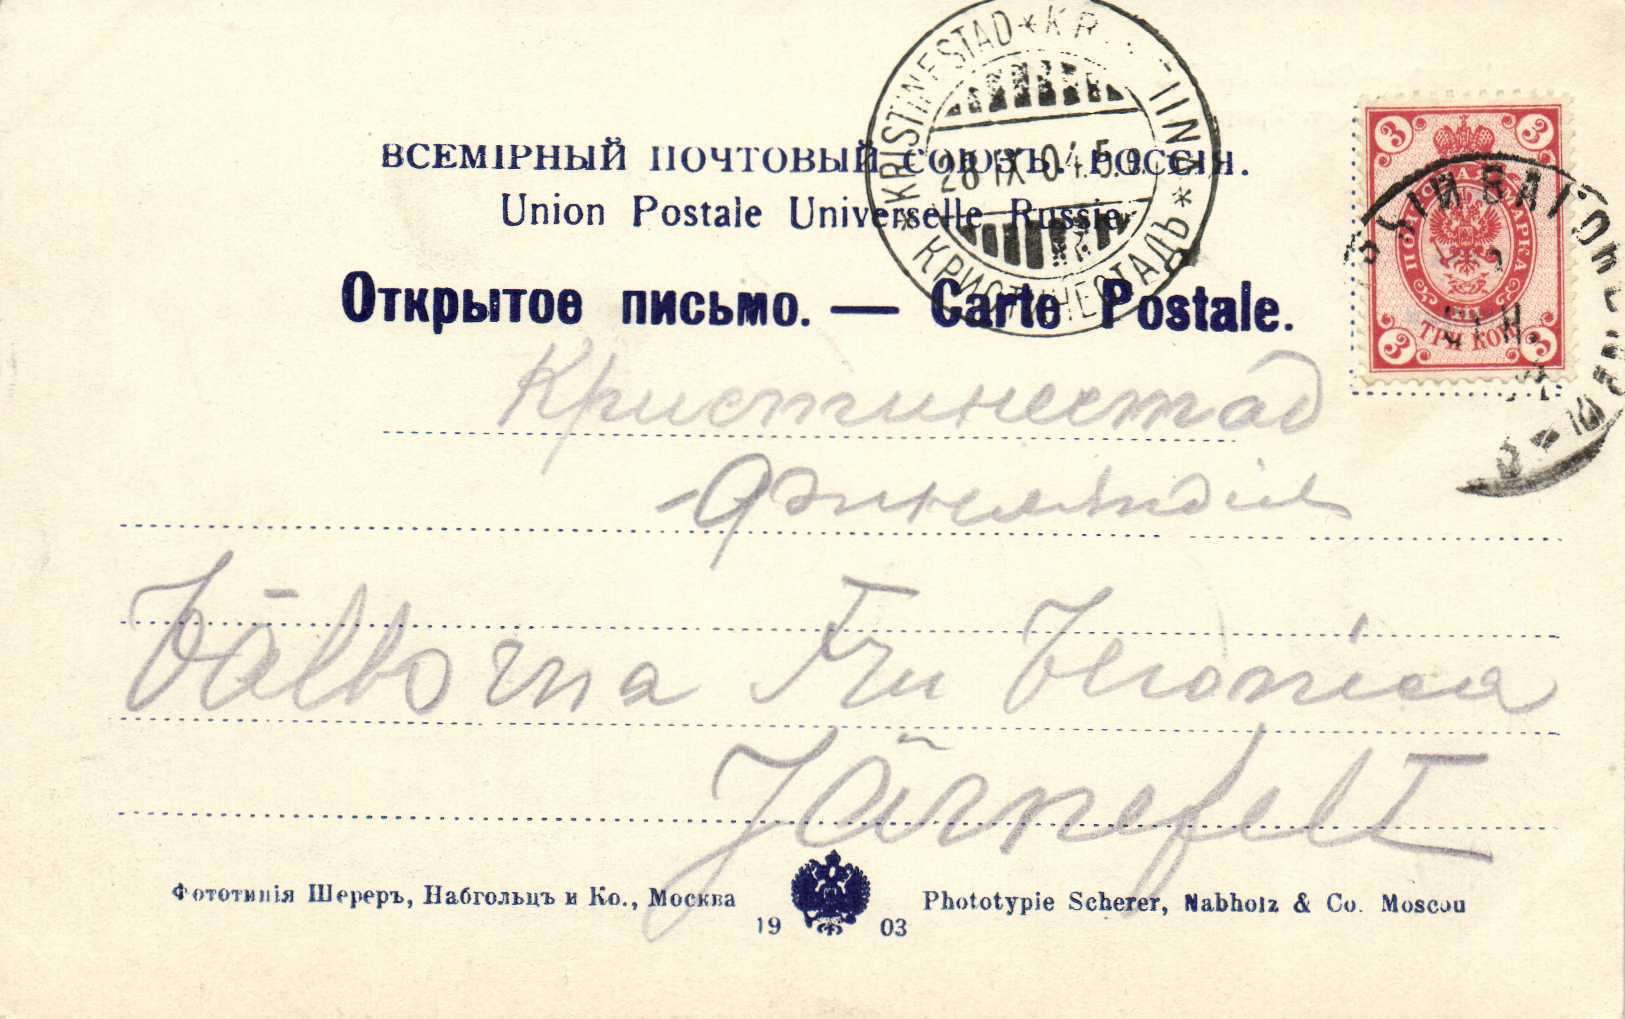 ВСЕМІРНЫЙ ПОЧТОВЫЙ СОЮЗЪ. РОССІЯ.
Union Postale Universelle Russie.
Открытое письмо. — Carte Postale.
KRISTINESTAD * КРИСТИНЕСТАДЪ *
28 IX 04
3 3
ПОЧТОВАЯ МАРКА
ТРИ КОП
3 3
Кристинестад
Финляндія
Välborna Fru Veronica
Järnefelt
Фототипія Шереръ, Набгольцъ и Ко., Москва
1903
Phototypie Scherer, Nabholz & Co. Moscou